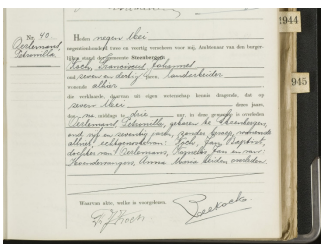 No. 40.
Oerlemans,
Petronilla
1944
945
Heden negen Mei
negentienhonderd twee en veertig verscheen voor mij, Ambtenaar van den burger-
lijken stand der gemeente Steenbergen
Koch, Franciscus Johannes
oud zeven en dertig jaar, landarbeider
wonende alhier
die verklaarde, daarvan uit eigen wetenschap kennis dragende, dat op
zeven Mei dezes jaars,
des na middags te drie uur, in deze gemeente is overleden
Oerlemans, Petronilla, geboren te Steenbergen,
oud vijf en zeventig jaren, zonder beroep, wonende
alhier, echtgenoote van Koch, Jan Baptist,
dochter van Oerlemans, en van
Anna Maria, beiden overleden.
Waarvan akte, welke is voorgelezen.
F. J. Koch